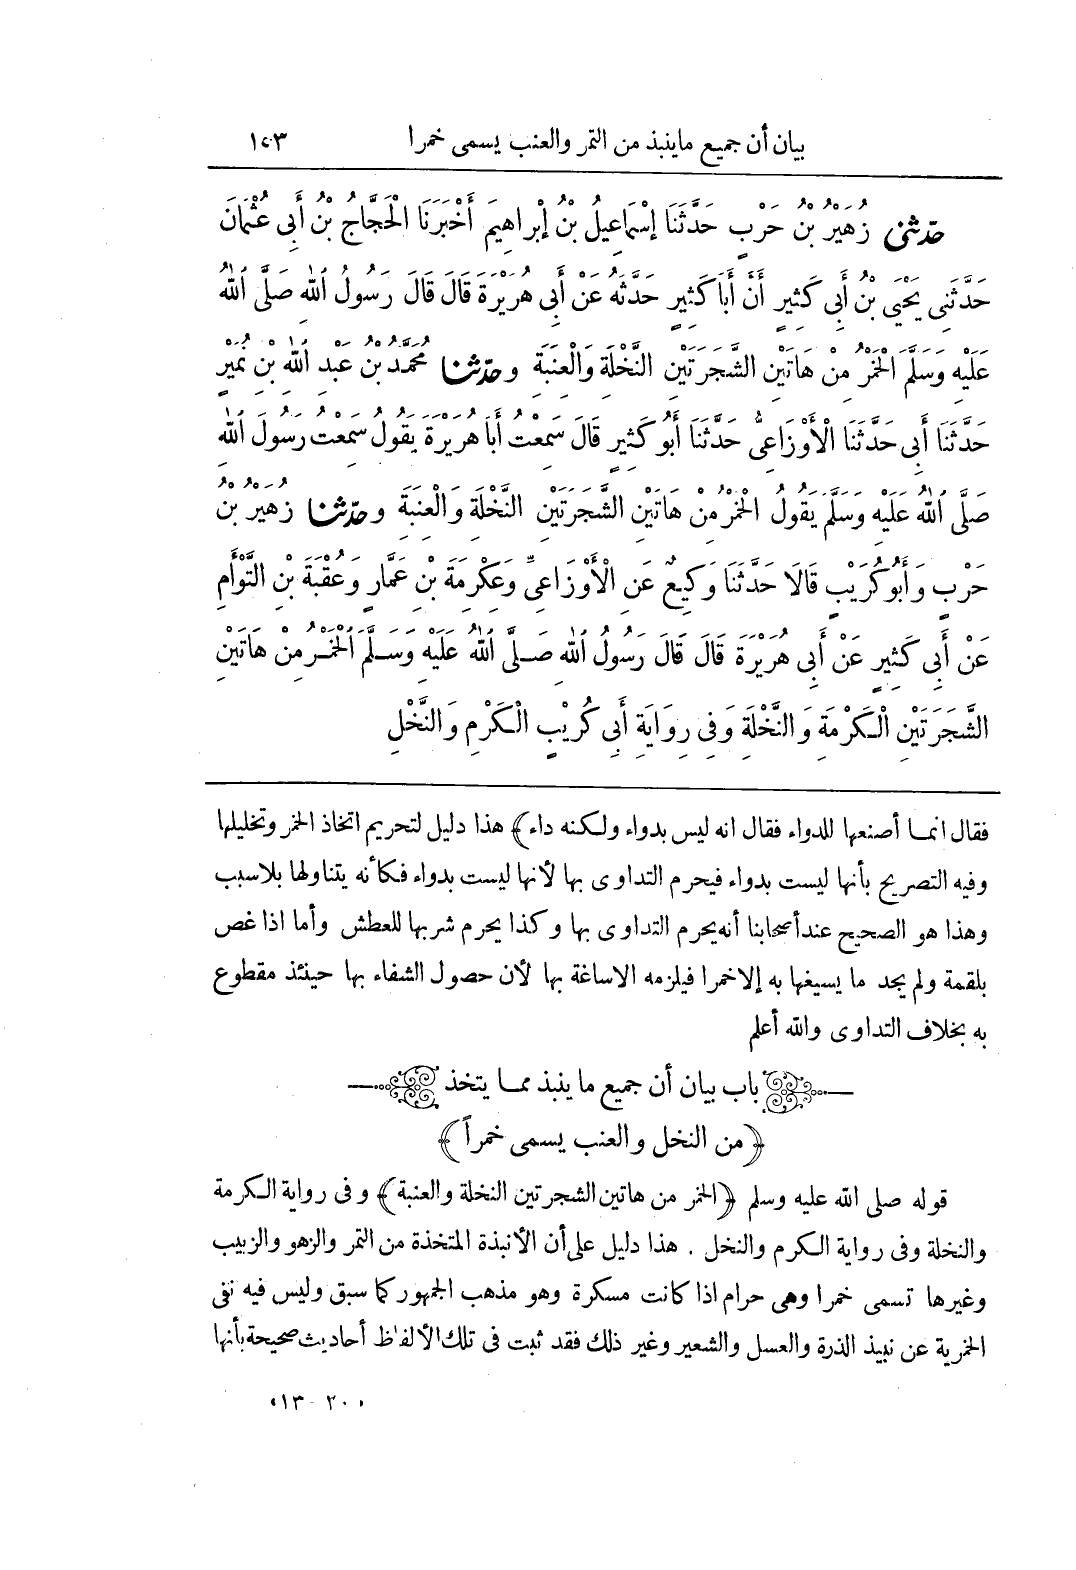 بيان أن جميع ماينبذ من التمر والعنب يسمى خمرا ١٥٣
حَدَّثَنِى زُهَيْرُ بْنُ حَرْبٍ حَدَّثَنَا إِسْمَاعِيلُ بْنُ إِبْرَاهِيمَ أَخْبَرَنَا الْحَجَّاجُ بْنُ أَبِى عُثْمَانَ
حَدَّثَنِى يَحْيَى بْنُ أَبِى كَثِيرٍ أَنَّ أَبَا كَثِيرٍ حَدَّثَهُ عَنْ أَبِى هُرَيْرَةَ قَالَ قَالَ رَسُولُ اللهِ صَلَّى اللهُ
عَلَيْهِ وَسَلَّمَ الْخَمْرُ مِنْ هَاتَيْنِ الشَّجَرَتَيْنِ النَّخْلَةِ وَالْعِنَبَةِ وحَدَّثَنَا مُحَمَّدُ بْنُ عَبْدِ اللهِ بْنِ نُمَيْرٍ
حَدَّثَنَا أَبِى حَدَّثَنَا الْأَوْزَاعِىُّ حَدَّثَنَا أَبُو كَثِيرٍ قَالَ سَمِعْتُ أَبَا هُرَيْرَةَ يَقُولُ سَمِعْتُ رَسُولَ اللهِ
صَلَّى اللهُ عَلَيْهِ وَسَلَّمَ يَقُولُ الْخَمْرُ مِنْ هَاتَيْنِ الشَّجَرَتَيْنِ النَّخْلَةِ وَالْعِنَبَةِ وحَدَّثَنَا زُهَيْرُ بْنُ
حَرْبٍ وَأَبُو كُرَيْبٍ قَالَا حَدَّثَنَا وَكِيعٌ عَنِ الْأَوْزَاعِىِّ وَعِكْرِمَةَ بْنِ عَمَّارٍ وَعُقْبَةَ بْنِ التَّوْأَمِ
عَنْ أَبِى كَثِيرٍ عَنْ أَبِى هُرَيْرَةَ قَالَ قَالَ رَسُولُ اللهِ صَلَّى اللهُ عَلَيْهِ وَسَلَّمَ الْخَمْرُ مِنْ هَاتَيْنِ
الشَّجَرَتَيْنِ الْكَرْمَةِ وَالنَّخْلَةِ وَفِى رِوَايَةِ أَبِى كُرَيْبٍ الْكَرْمِ وَالنَّخْلِ
فقال انما أصنعها للدواء فقال انه ليس بدواء ولكنه داء﴾ هذا دليل لتحريم اتخاذ الخمر وتخليلها
وفيه التصريح بأنها ليست بدواء فيحرم التداوى بها لأنها ليست بدواء فكأنه يتناولها بلاسبب
وهذا هو الصحيح عند أصحابنا أنه يحرم التداوى بها وكذا يحرم شربها للعطش وأما اذا غص
بلقمة ولم يجد ما يسيغها به إلا خمرا فيلزمه الاساغة بها لأن حصول الشفاء بها حينئذ مقطوع
به بخلاف التداوى والله أعلم
باب بيان أن جميع ما ينبذ مما يتخذ
﴿من النخل والعنب يسمى خمراً﴾
قوله صلى الله عليه وسلم ﴿الخمر من هاتين الشجرتين النخلة والعنبة﴾ وفى رواية الكرمة
والنخلة وفى رواية الكرم والنخل . هذا دليل على أن الأنبذة المتخذة من التمر والزهو والزبيب
وغيرها تسمى خمرا وهى حرام اذا كانت مسكرة وهو مذهب الجمهور كما سبق وليس فيه نفى
الخمرية عن نبيذ الذرة والعسل والشعير وغير ذلك فقد ثبت فى تلك الألفاظ أحاديث صحيحة بأنها
«٢٠ - ١٣»